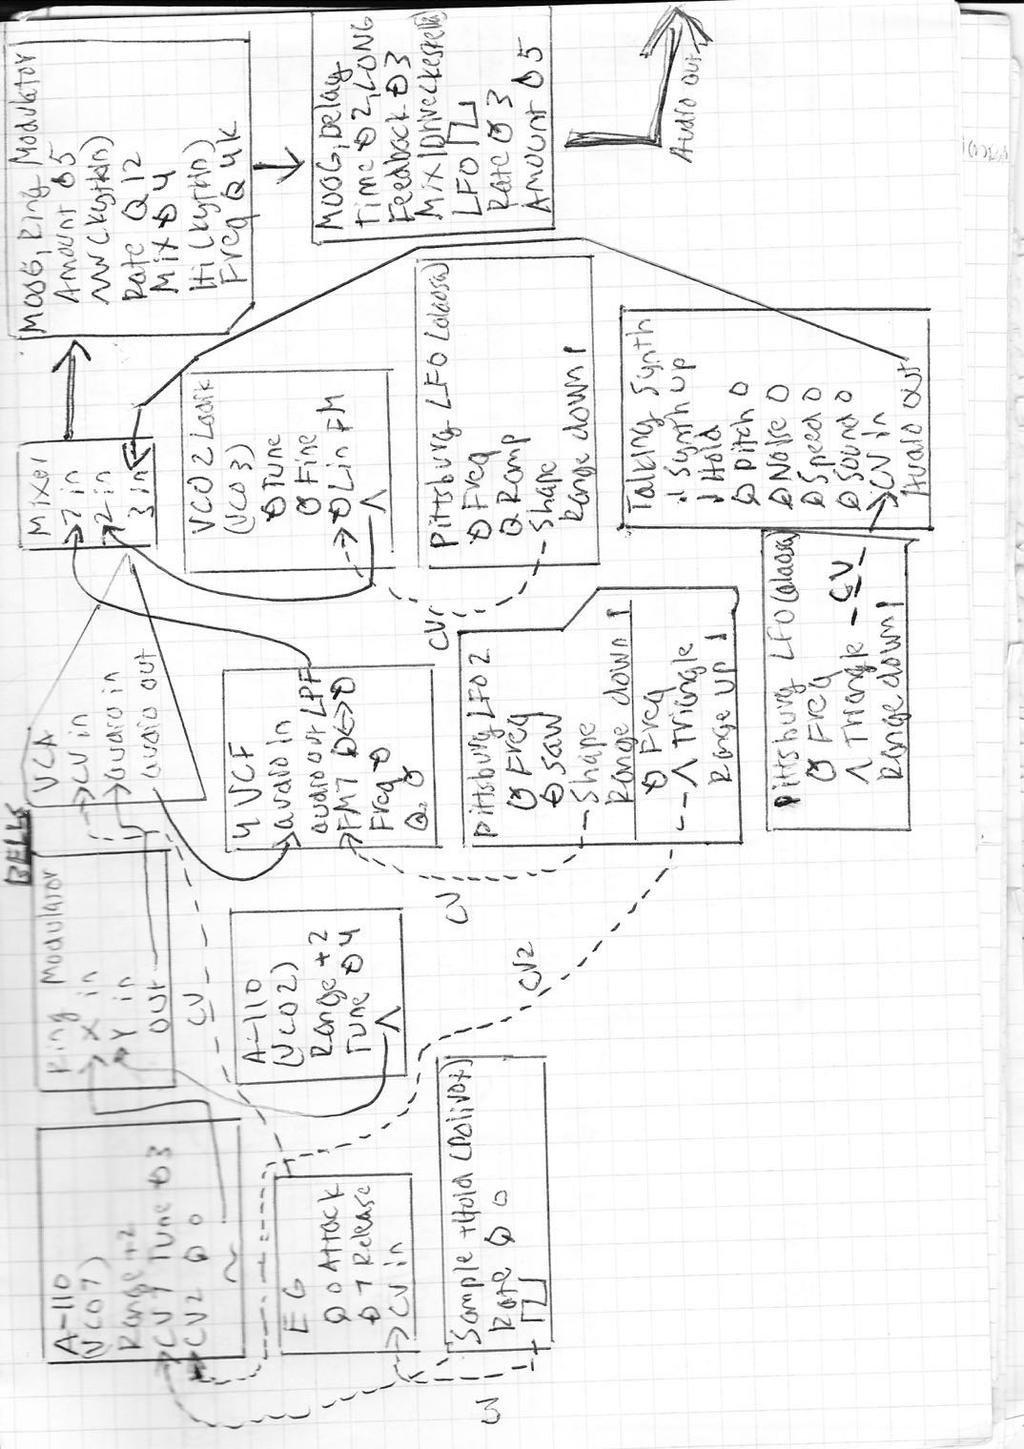 BELLS
A-110
(VCO1)
Range +2
CV1 Tune 3
CV2 0
Ring Modulator
X in
Y in
OUT
VCA
CV in
audio in
audio out
Mixer
1 in
2 in
3 in
MOOG, Ring Modulator
Amount 5
Rate 12
Mix 4
Hi (kytkin)
Freq 4K
EG
0 Attack
1 Release
CV in
CV
A-110
(VCO2)
Range +2
Tune 4
4 VCF
audio in
audio out LPF
FM1
Freq
Q
VCO 2
(VCO3)
Tune
Fine
Lin FM
MOOG, Delay
Time 2, LONG
Feedback 3
LFO
Rate 3
Amount 5
Sample + Hold (Polivox)
Rate 0
CV
CV2
CV
Pittsburg LFO2
Freq
Saw
Shape
Range down
Freq
Triangle
Range up
CV
Pittsburg LFO (alaosa)
Freq
Ramp
Shape
Range down
Audio out
Pittsburg LFO (alaosa)
Freq
Triangle - CV
Range down
Talking Synth
Synth up
Hold
Pitch 0
Noise 0
Speed 0
Sound 0
CV in
Audio out